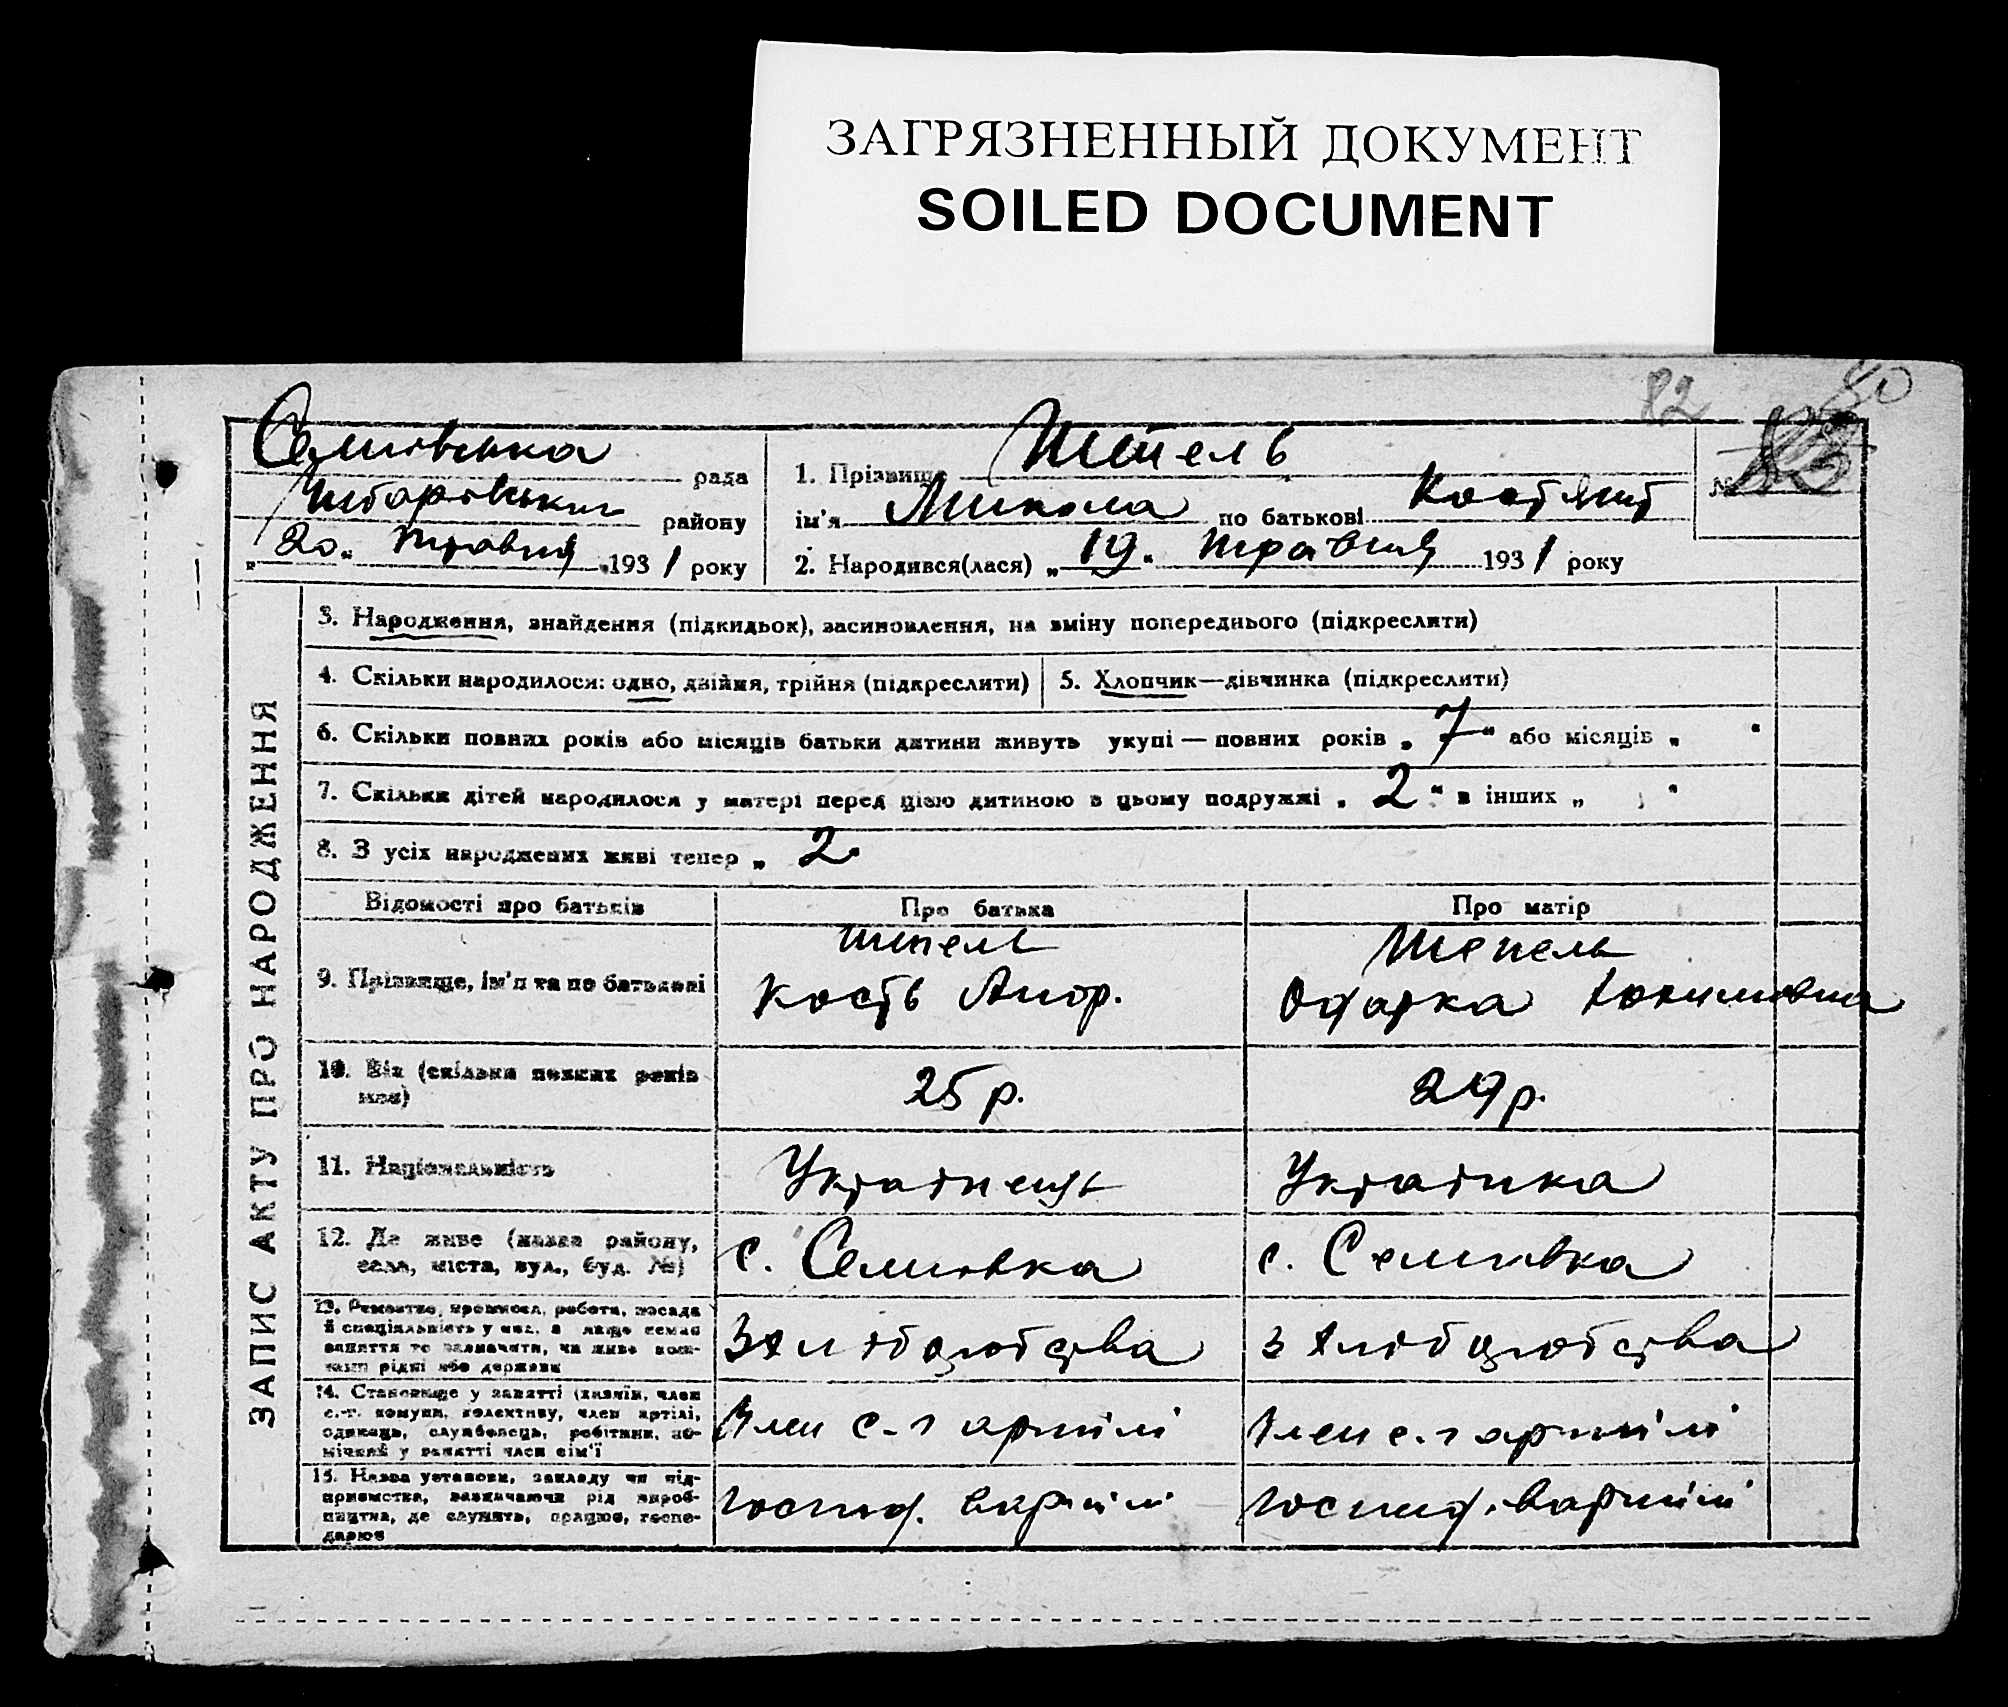 ЗАГРЯЗНЕННЫЙ ДОКУМЕНТ
SOILED DOCUMENT
82
80
рада
району
„20„ травня 1931 року
1. Прізвище Шепель
ім'я Микола по батькові
№
2. Народився(лася) „19„ травня 1931 року
ЗАПИС АКТУ ПРО НАРОДЖЕННЯ
3. Народження, знайдення (підкидьок), засиновлення, на зміну попереднього (підкреслити)
4. Скільки народилося: одно, двійня, трійня (підкреслити)
5. Хлопчик—дівчинка (підкреслити)
6. Скільки повних років або місяців батьки дитини живуть укупі — повних років „7“ або місяців „ “
7. Скільки дітей народилося у матері перед цією дитиною в цьому подружжі „2“ в інших „ “
8. З усіх народжених живі тепер „2
Відомості про батьків
Про батька
Про матір
9. Прізвище, ім'я та по батькові
Шепель
Кость
Шепель
Одарка
10. Вік (скільки повних років має)
25 р.
29 р.
11. Національність
Українець
Українка
12. Де живе (назва району,
села, міста, вул., буд. №)
с. Семиовка
с. Семиовка
13. Ремество, промисел, робота, посада
й спеціальність у них, а якщо немає
заняття то зазначити, чи живе кош-
тами рідні або держави
З хліборобства
з хліборобства
14. Становище у занятті (хазяїн, член
с.-г. комуни, колективу, член артілі,
одинець, службовець, робітник, по-
мічний у занятті член сім'ї
Член с-г артілі
Член с-г артілі
15. Назва установи, закладу чи під-
приємства, зазначаючи рід вироб-
ництва, де служить, працює, госпо-
дарює
господ. в артілі
господ. в артілі